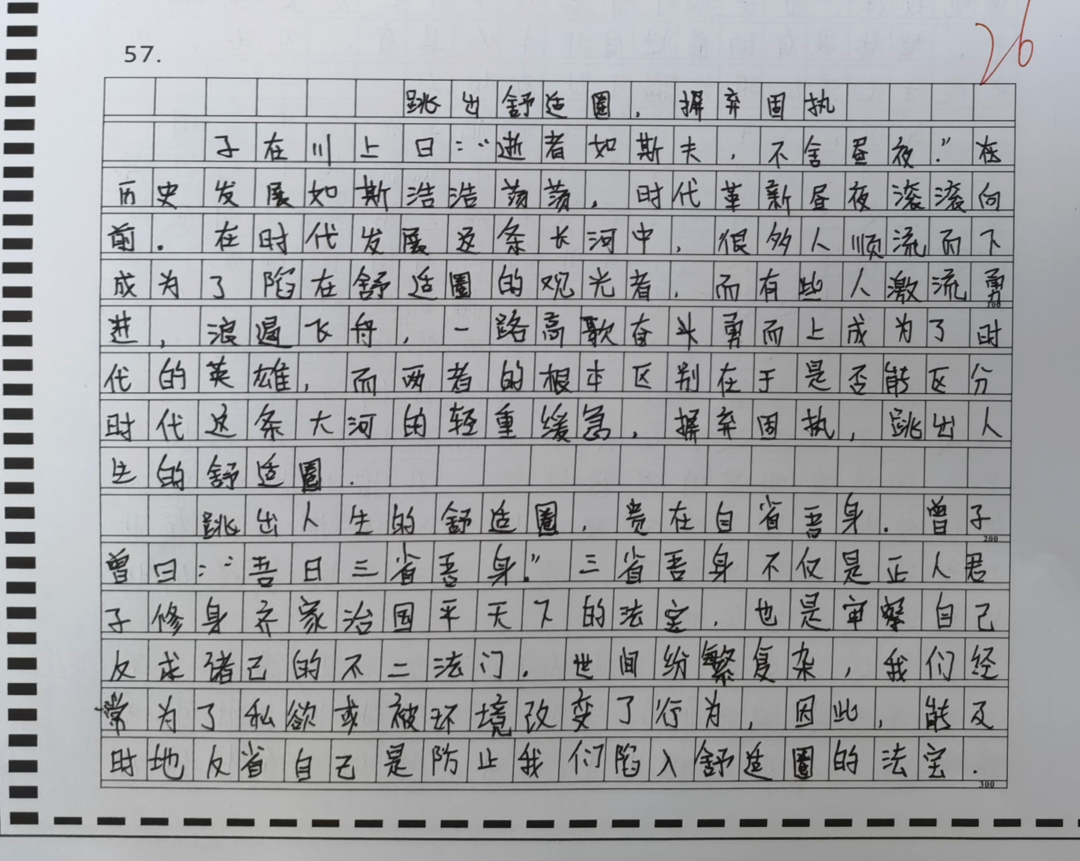 26
57.
跳出舒适圈，摒弃固执
子在川上曰：“逝者如斯夫，不舍昼夜。”在
历史发展如斯浩浩荡荡，时代革新昼夜滚滚向
前。在时代发展这条长河中，很多人顺流而下
成为了陷在舒适圈的观光者，而有些人激流勇
100
进，浪遏飞舟，一路高歌奋斗勇而上成为了时
代的英雄，而两者的根本区别在于是否能区分
时代这条大河的轻重缓急，摒弃固执，跳出人
生的舒适圈。
跳出人生的舒适圈，贵在自省吾身。曾子
200
曾曰：“吾日三省吾身。”三省吾身不仅是正人君
子修身齐家治国平天下的法宝，也是审察自己
反求诸己的不二法门。世间纷繁复杂，我们经
常为了私欲或被环境改变了行为，因此，能及
时地反省自己是防止我们陷入舒适圈的法宝。
300